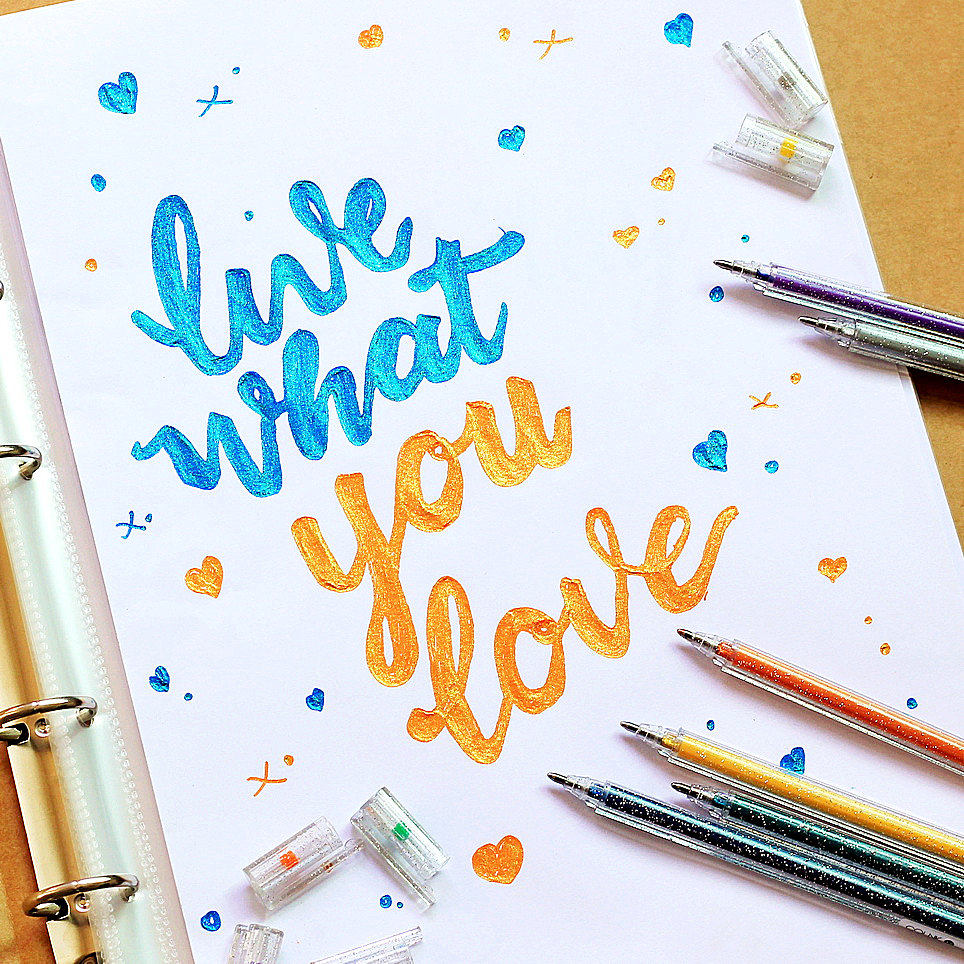 live
what
you
love